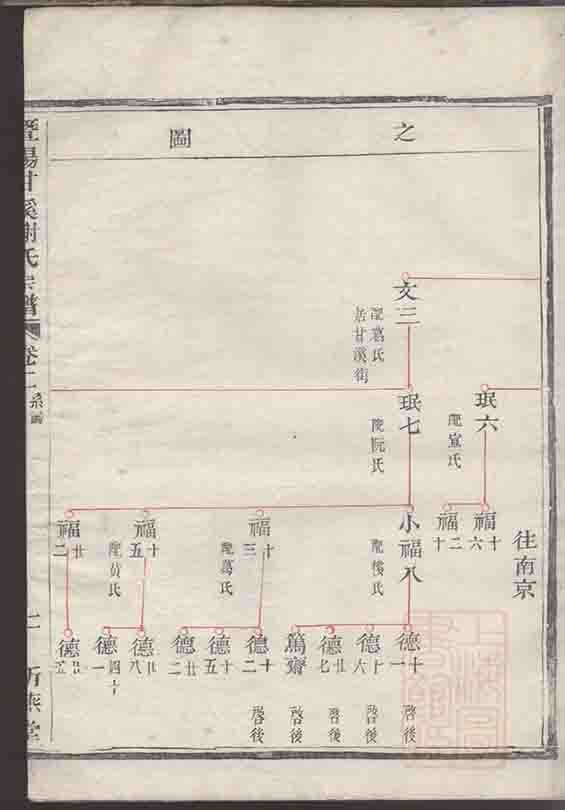 之圖
文三
配葛氏
居甘溪街
珉六
配宣氏
珉七
配阮氏
往南京
福十六
福十二
小福八
配樓氏
福十三
配葛氏
福十五
配黄氏
福廿二
德十一
啓後
德十六
啓後
德廿七
啓後
篤齋
啓後
德十二
啓後
德十五
德廿二
德廿八
德四十一
德
暨陽甘溪謝氏宗譜
卷二
系圖
二